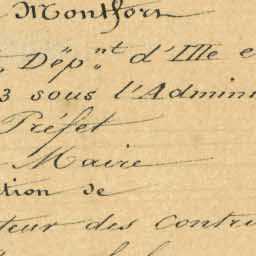 Montfort
Dép.nt d'Ille e
3 sous l'Admini
Préfet
Maire
tion de
teur des contri